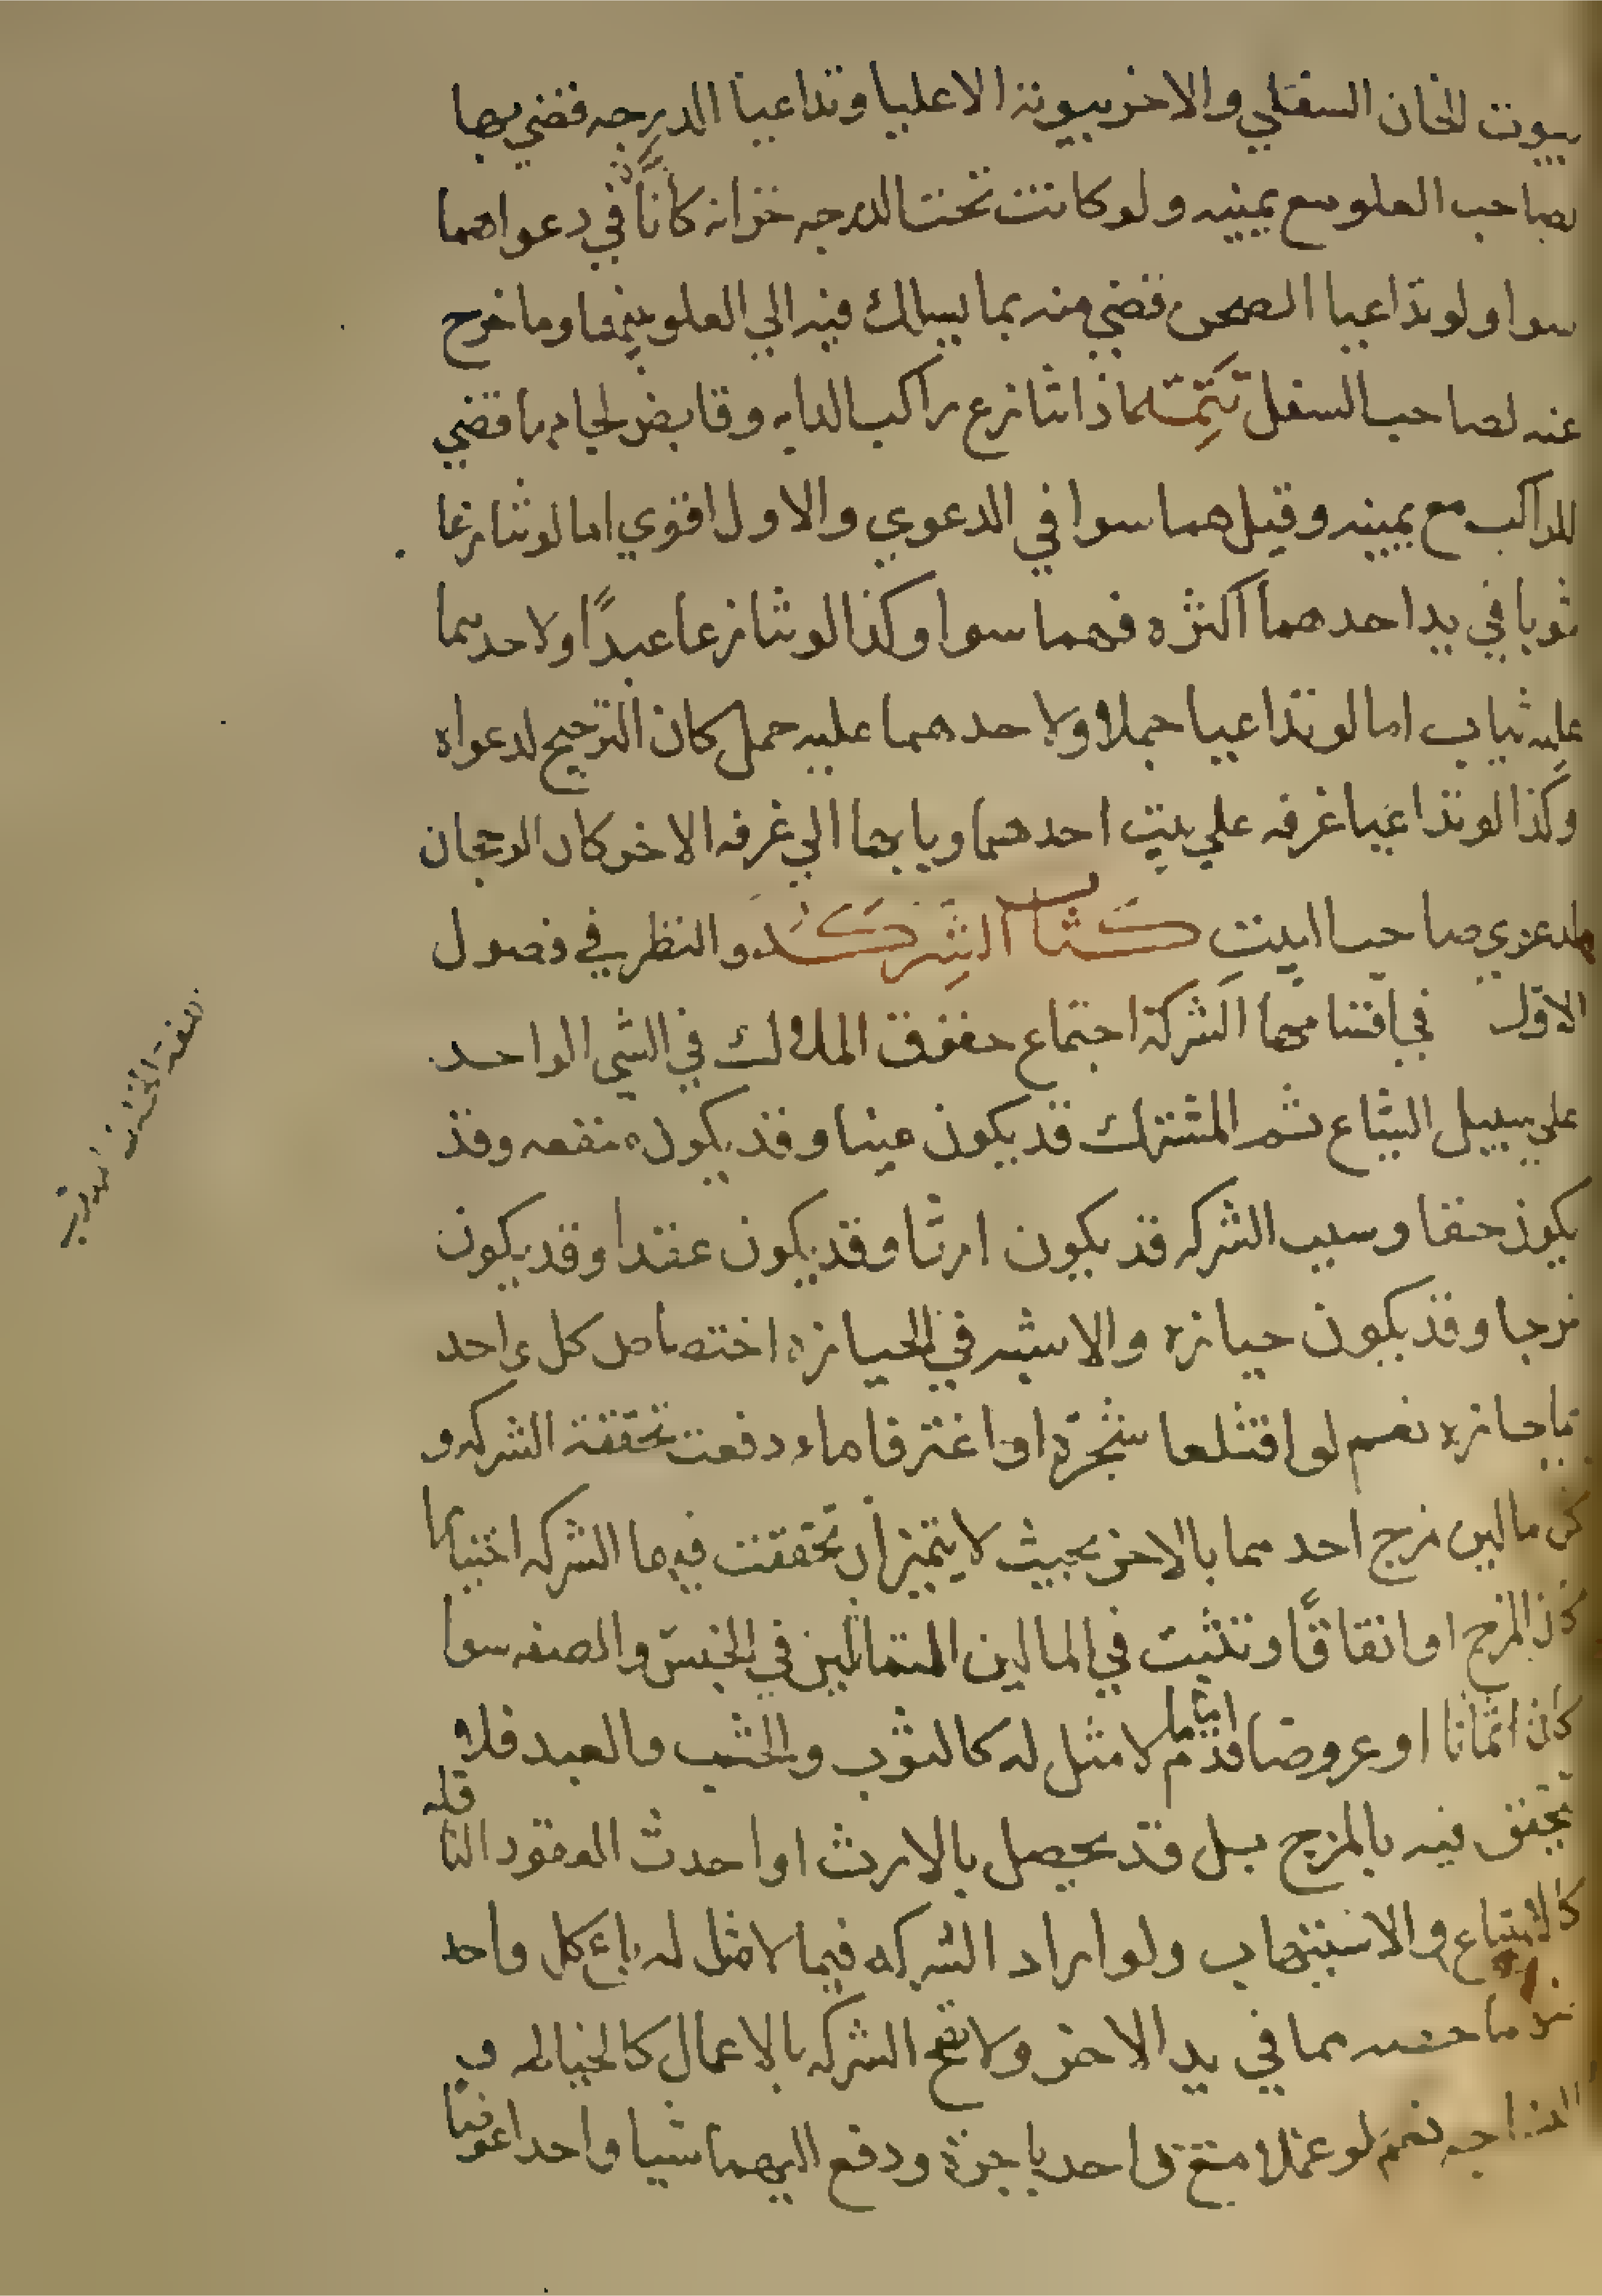 بيوت الخان السفلي والاخر بيوته الاعليا وتداعيا الدرجه قضي بها
لصاحب العلو مع يمينه ولو كانت تحت الدرجه خزانه كانا في دعواهما
سوا ولو تداعيا الصحن قضي منه بما يسلك فيه الي العلو بينهما وما خرج
عنه لصاحب السفل تتمه اذا تنازع راكب الدابه وقابض لجامها قضي
للراكب مع يمينه وقيل هما سوا في الدعوي والاول اقوي اما لو تنازعا
ثوبا في يد احدهما اكثره فهما سوا وكذا لو تنازعا عبدًا ولاحدهما
عليه ثياب اما لو تداعيا جملا ولاحدهما عليه حمل كان الترجيح لدعواه
وكذا لو تداعيا غرفه علي بيت احدهما وبابها الي غرفه الاخر كان الرجحان
لدعوي صاحب البيت كتاب الشركه والنظر في فصول
الاول في اقسامها الشركة اجتماع حقوق الملاك في الشي الواحد
علي سبيل الشياع ثم المشترك قد يكون عينا وقد يكون منفعه وقد
يكون حقا وسبب الشركه قد يكون ارثا وقد يكون عقدا وقد يكون
مزجا وقد يكون حيازه والاشبه في الحيازه اختصاص كل واحد
بما حازه نعم لو اقتلعا شجرة او اغترفا ماء دفعت تحققة الشركه و
كل مالين مزج احدهما بالاخر بحيث لا يتميزان تحققت فيهما الشركه اختيارا
كان المزج او اتفاقًا وتثبت في المالين المتماثلين في الجنس والصفه سوا
كانا اثمانا او عروضا اما ما لا مثل له كالثوب والخشب والعبد فلا
تحقق فيه بالمزج بل قد يحصل بالارث او احدث العقود الناقله
كالابتياع والاستيهاب ولو اراد الشركه فيما لا مثل له باع كل واحد
منهما حصته مما في يد الاخر ولا تصح الشركه بالاعمال كالخياطه و
النساجه نعم لو عملا مع واحد باجرة ودفع اليهما شيا واحدا عوضا